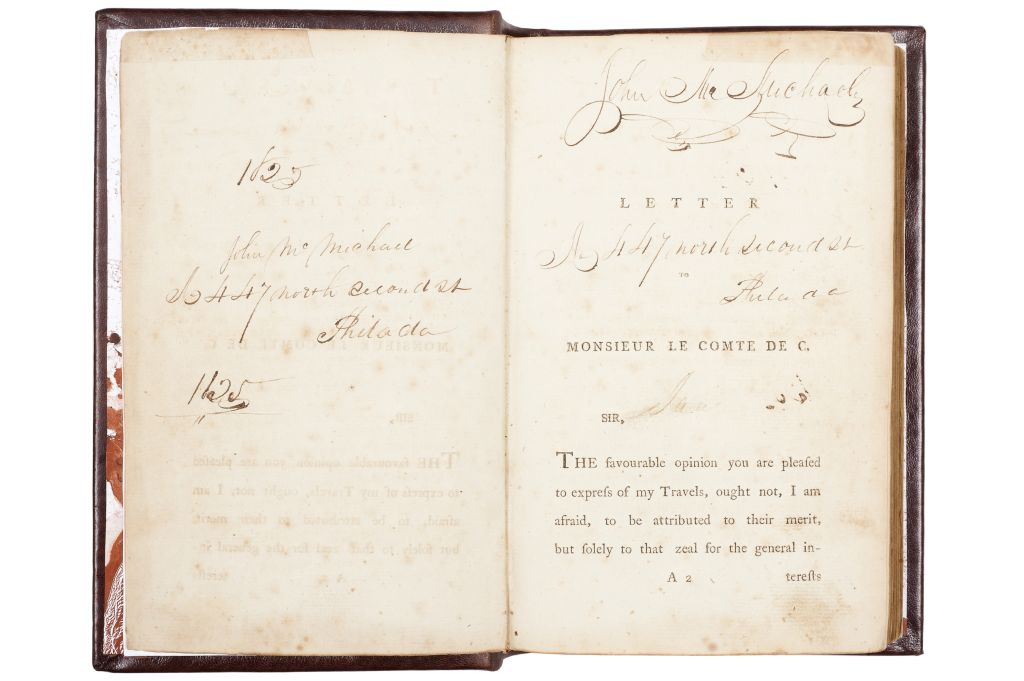 1825
John Mc Michael
No 447 north second st
Philada
1825
John Mc Michael
LETTER
No 447 north second st
TO
Philada
MONSIEUR LE COMTE DE C.
SIR,
THE favourable opinion you are pleaſed
to expreſs of my Travels, ought not, I am
afraid, to be attributed to their merit,
but ſolely to that zeal for the general in-
A 2 tereſts